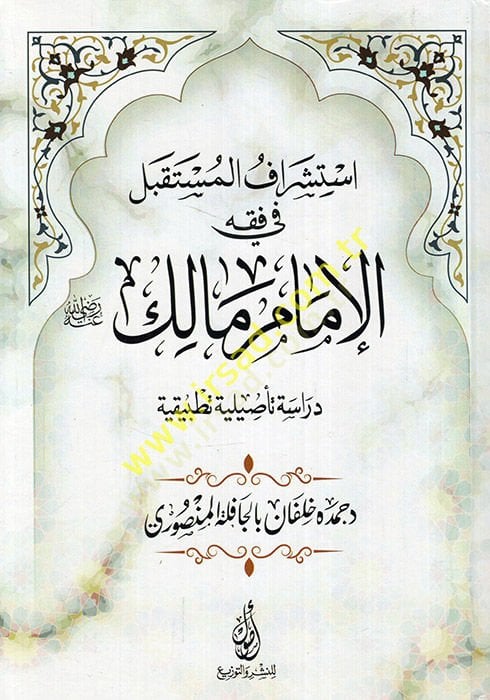 استشراف المستقبل
في فقه
الإمام مالك
رضي الله عنه
دراسة تأصيلية تطبيقية
د حمده خلفان بالجافلة المنصوري
أصول
للنشر والتوزيع
www.irsad.com.tr